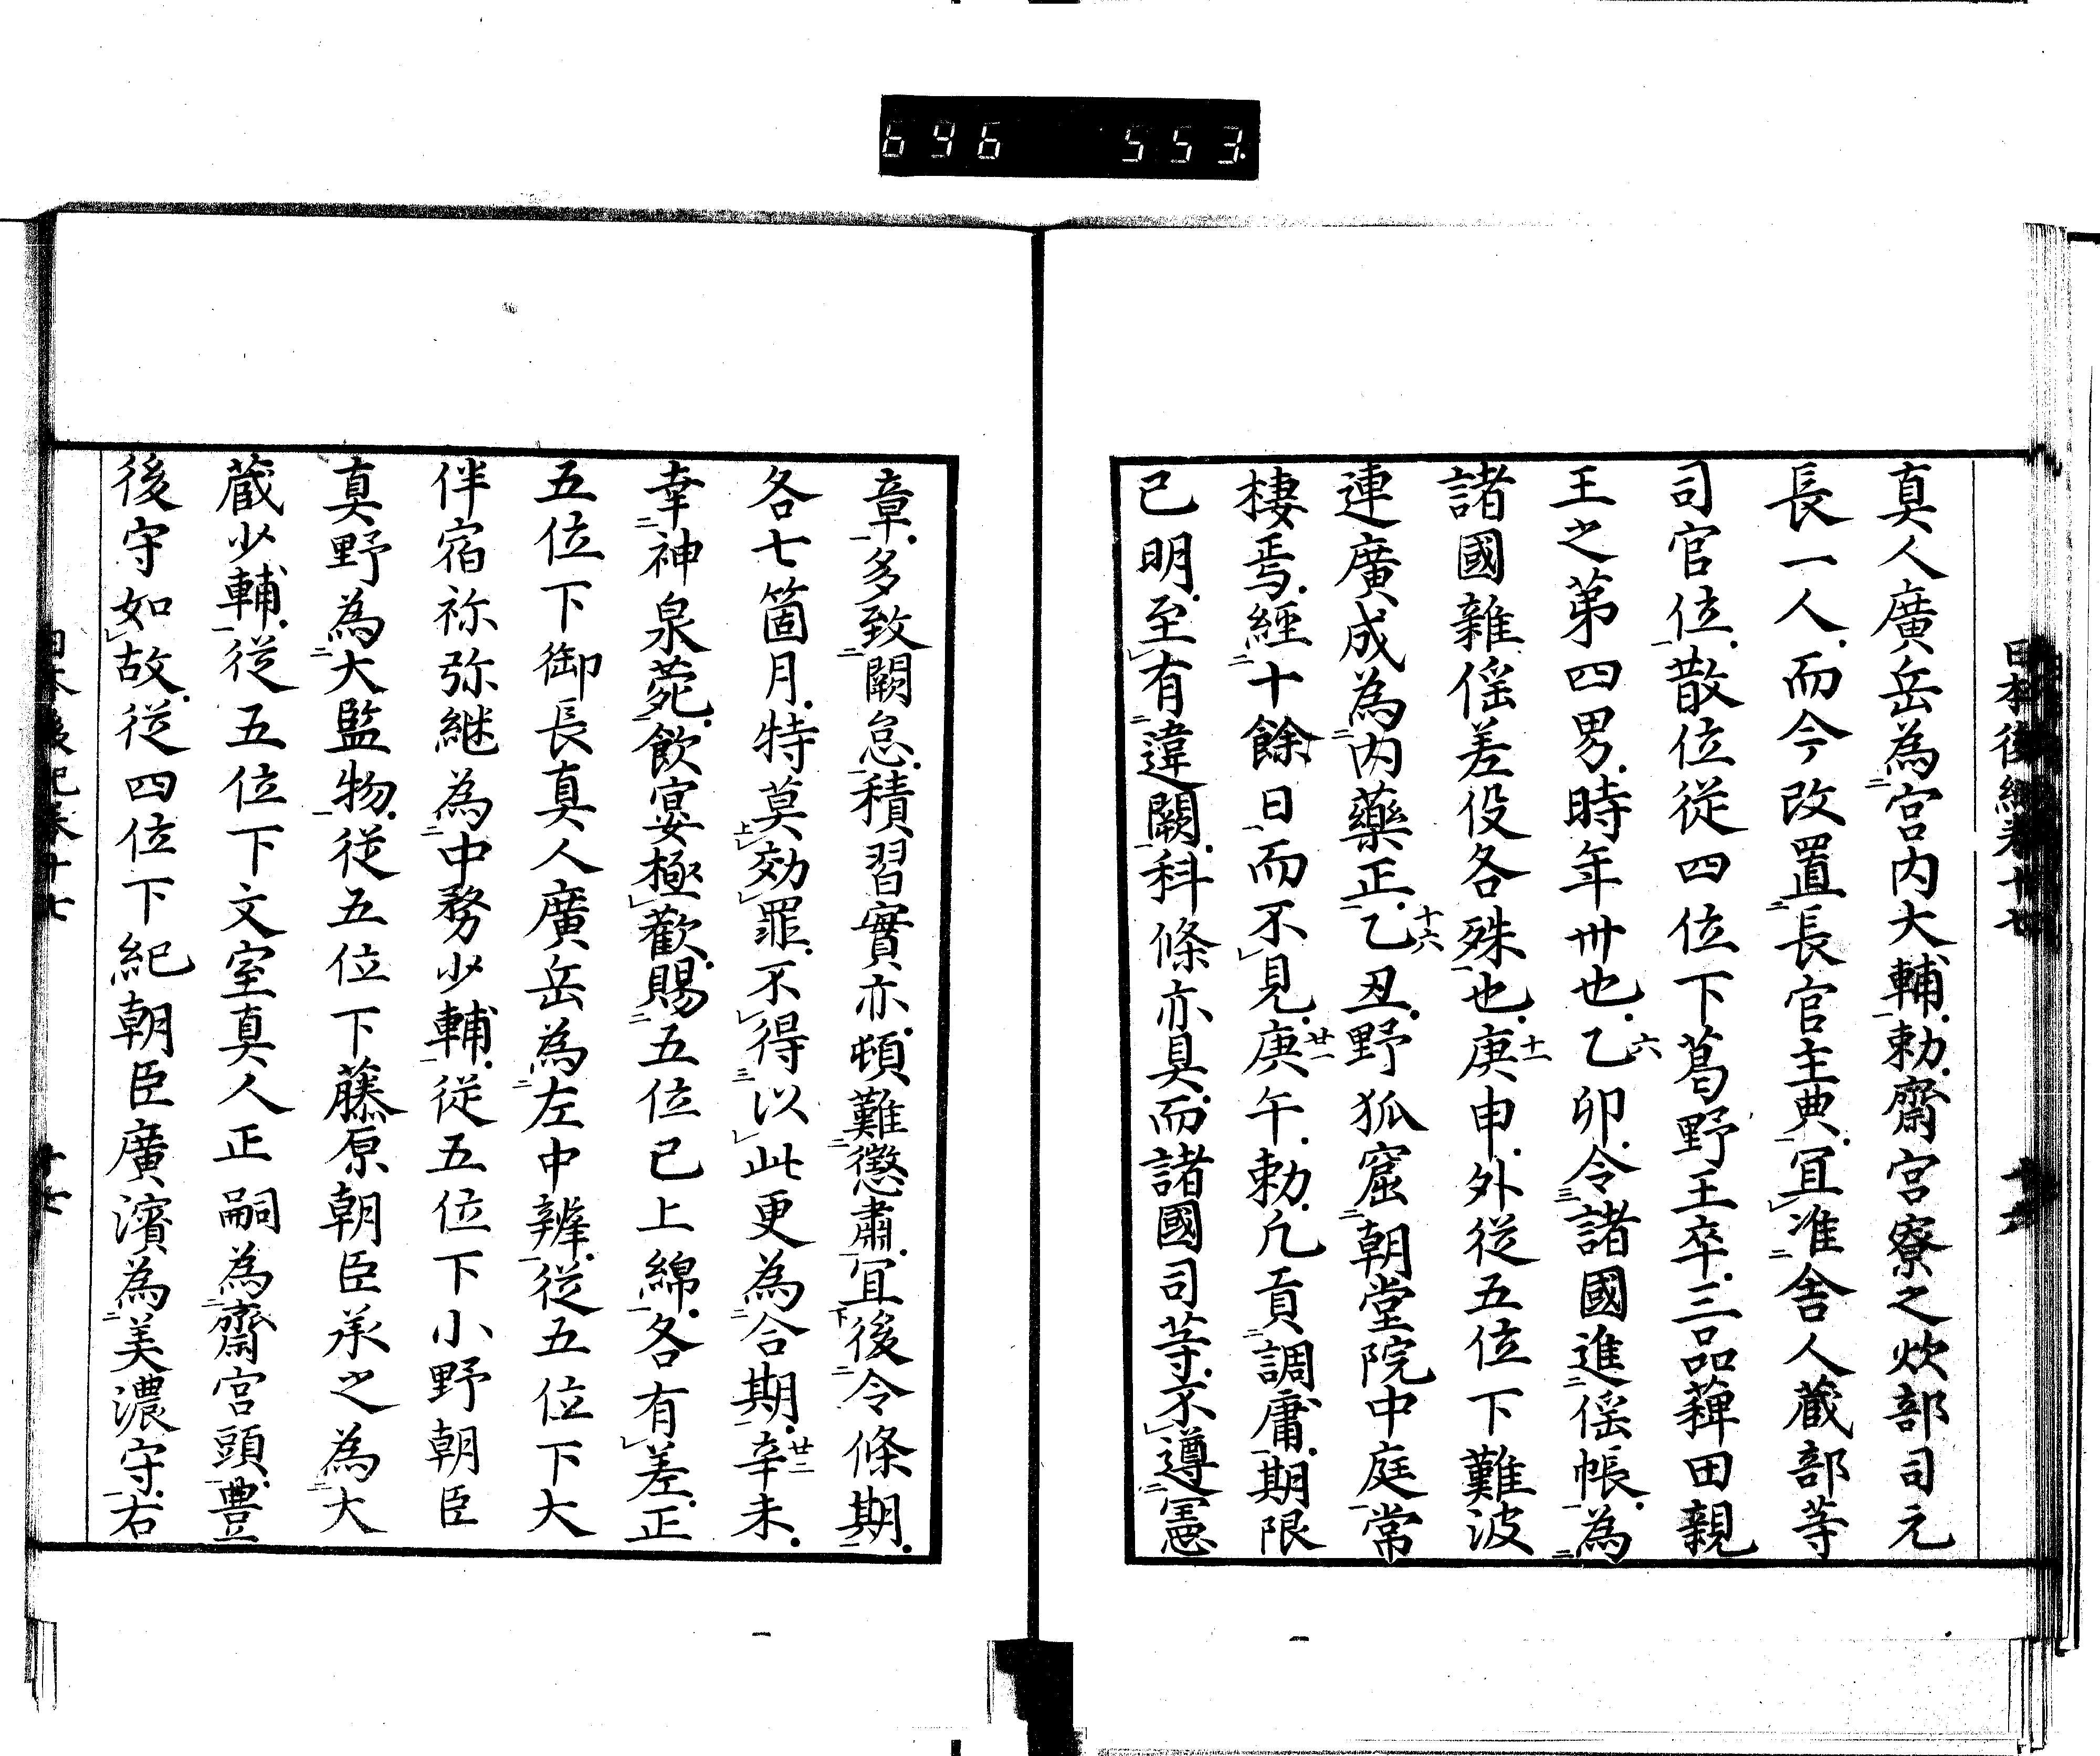 696 553
日本後紀卷十七
真人廣岳為宮内大輔勅齋宮寮之炊部司元
長一人而今改置長官主典冝准舎人蔵部等
司官位散位從四位下葛野王卒三品葎田親
王之第四男時年卅也乙卯六令諸國進傜帳為
諸國雜傜差役各殊也庚十一申外從五位下難波
連廣成為内藥正乙十六丑野狐窟朝堂院中庭常
棲焉經十餘日而不見庚廿一午勅凢貢調庸期限
已明至有違闕科條亦具而諸國司等不遵憲
章多致闕怠積習實亦頓難懲肅冝後令條期
各七箇月特莫効罪不得以此更為合期辛廿二未
幸神泉苑飲宴極歡賜五位已上綿各有差正
五位下御長真人廣岳為左中辨從五位下大
伴宿祢弥継為中務少輔從五位下小野朝臣
真野為大監物從五位下藤原朝臣承之為大
蔵少輔從五位下文室真人正嗣為齋宮頭豊
後守如故從四位下紀朝臣廣濱為美濃守右
日本後紀卷十七